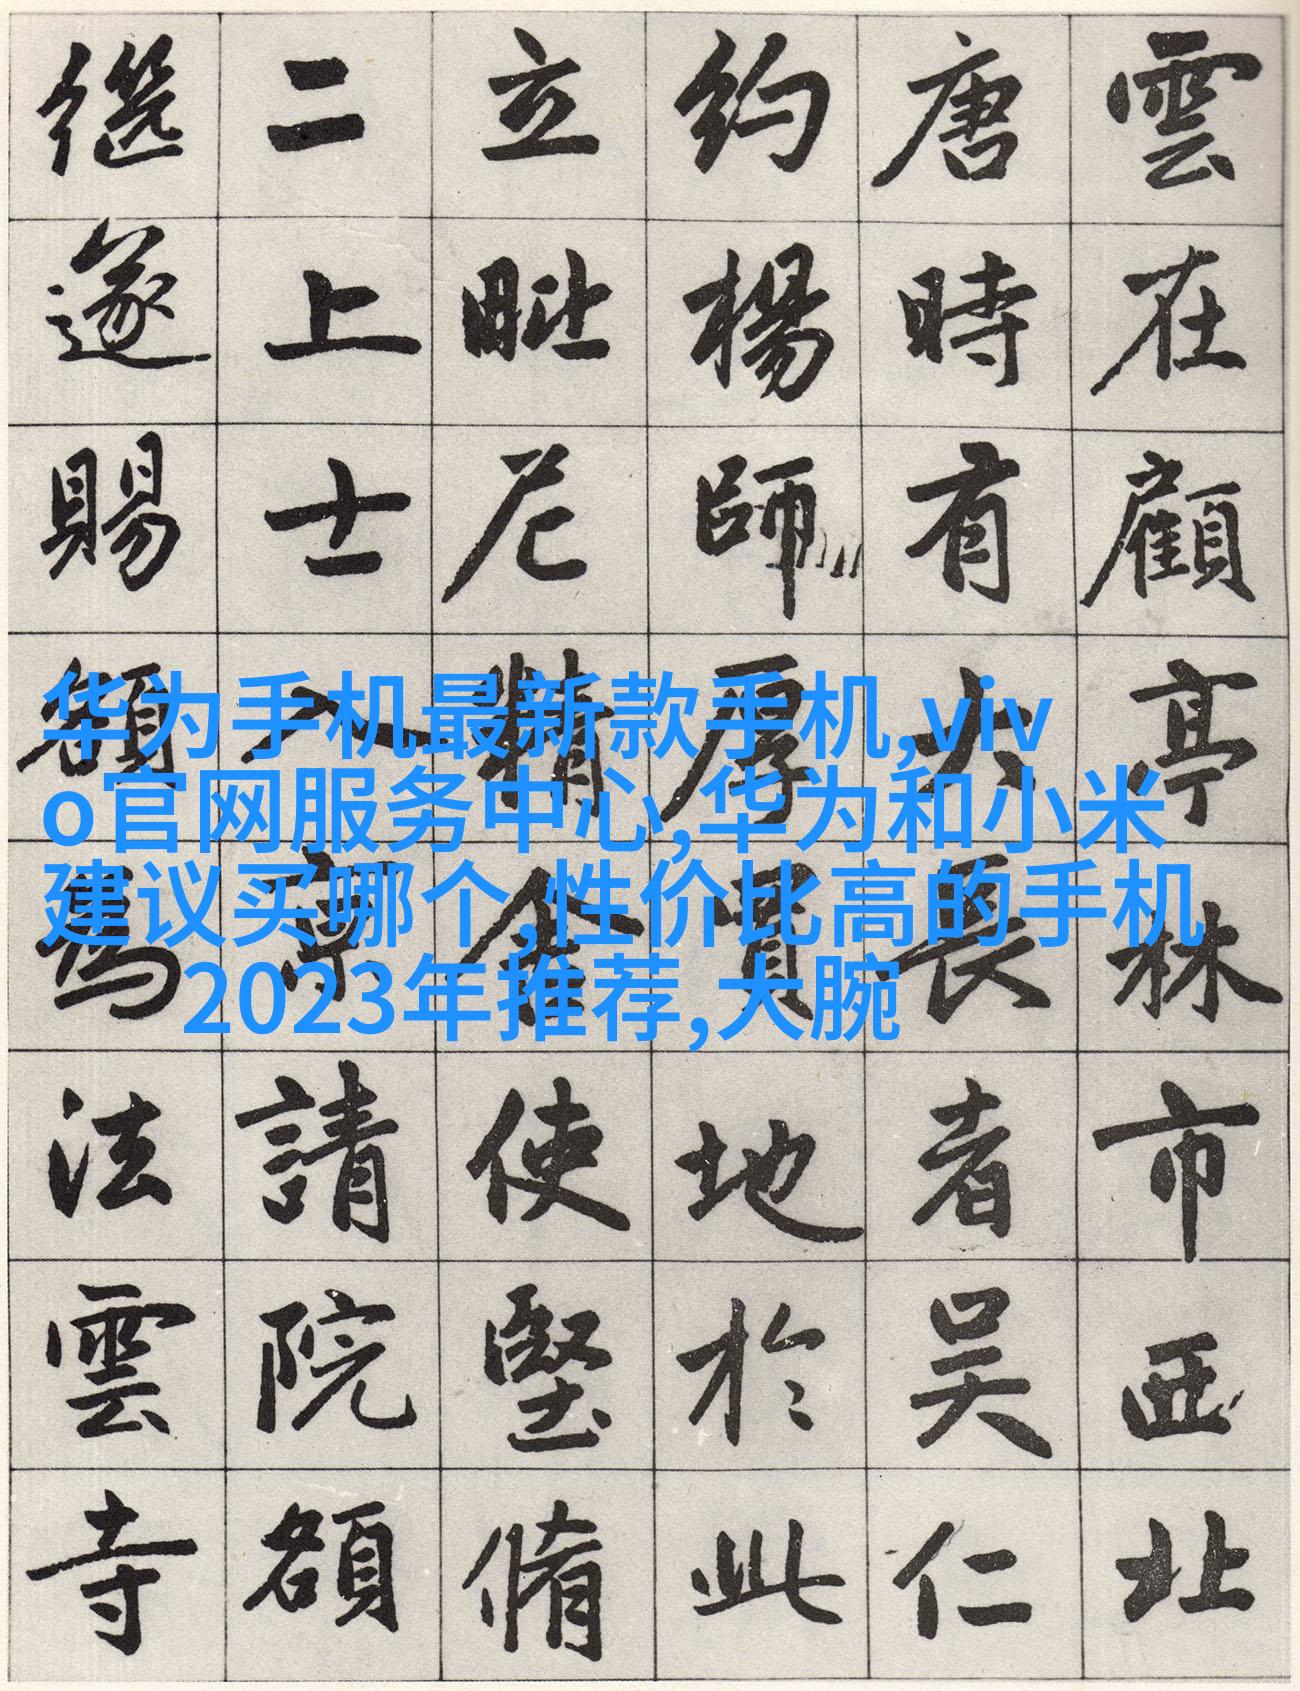 雲在顧亭林市西北
唐時有大長者吴仁
約楊師厚買地於此
立毗尼精舍使堅脩
二上士入京請院額
继遂賜額為法雲寺
华为手机最新款手机,viv
o官网服务中心,华为和小米
建议买哪个,性价比高的手机
2023年推荐,大腕